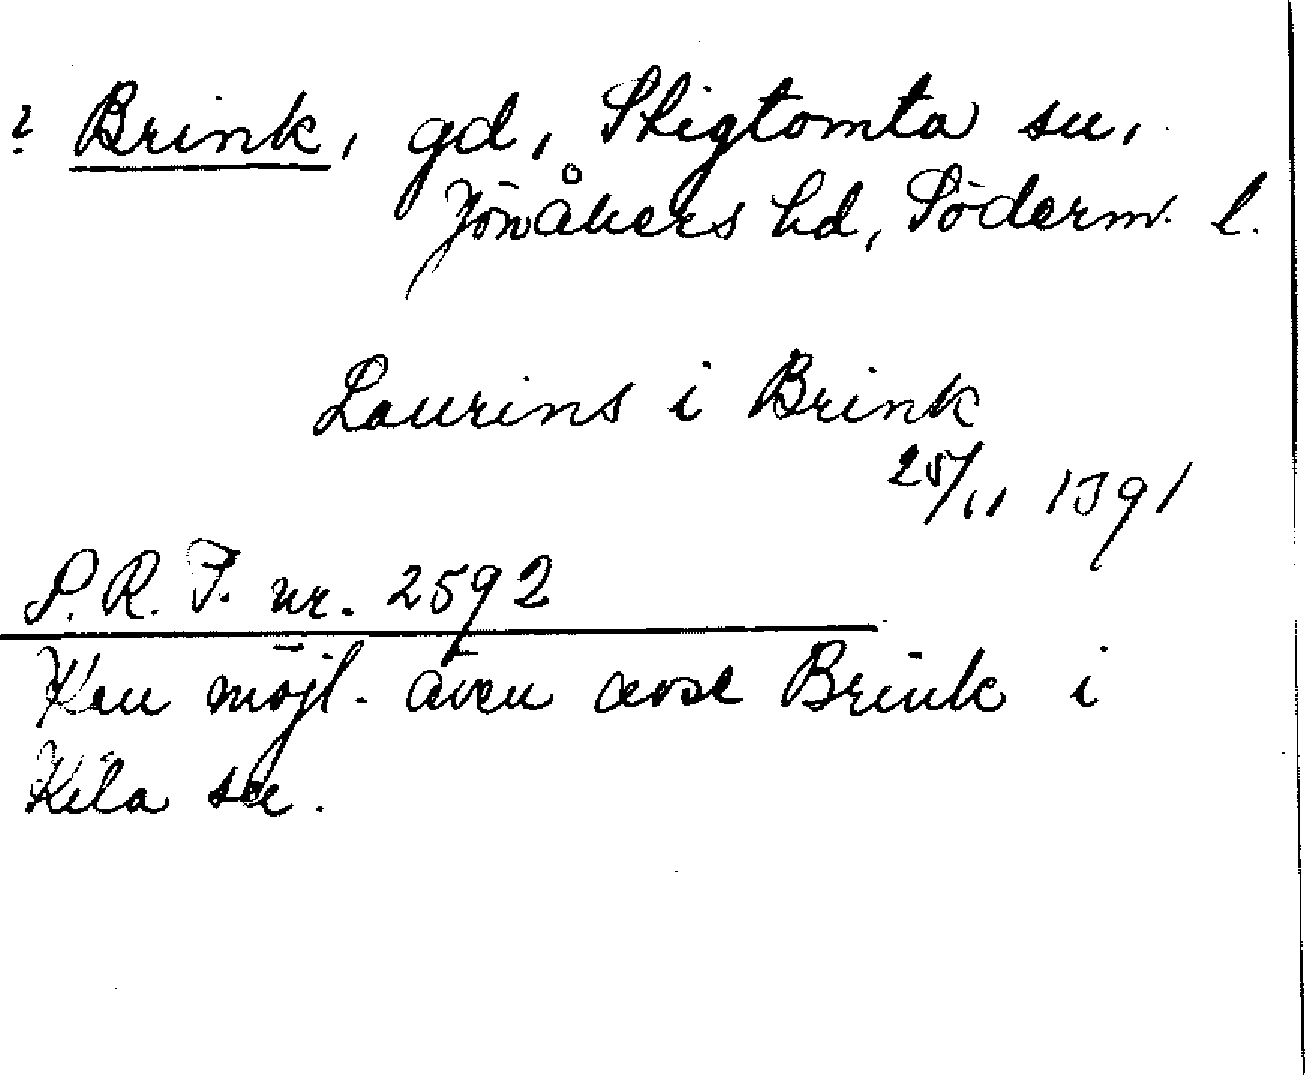 ? Brink, gd, Stigtomta sn,
Jönåkers hd, Söderm. l.
Laurins i Brink
25/11 1391
S.R.P. nr. 2592
Kan möjl. även avse Brink i
Kila sn.